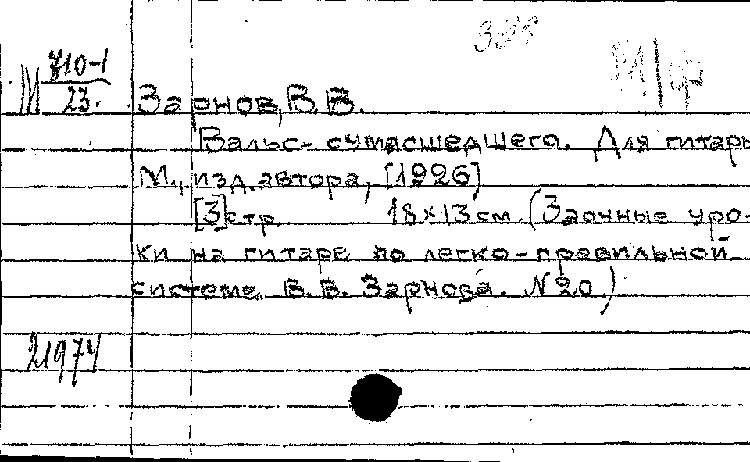 М 710-1
23.
Зарнов, В. В.
Вальс-сумасшедшего. Для гитары
М., изд. автора, [1926]
[3] стр. 18×13 см. (Заочные уро-
ки на гитаре по легко-правильной
системе В. В. Зарнова. N 20.)
21974